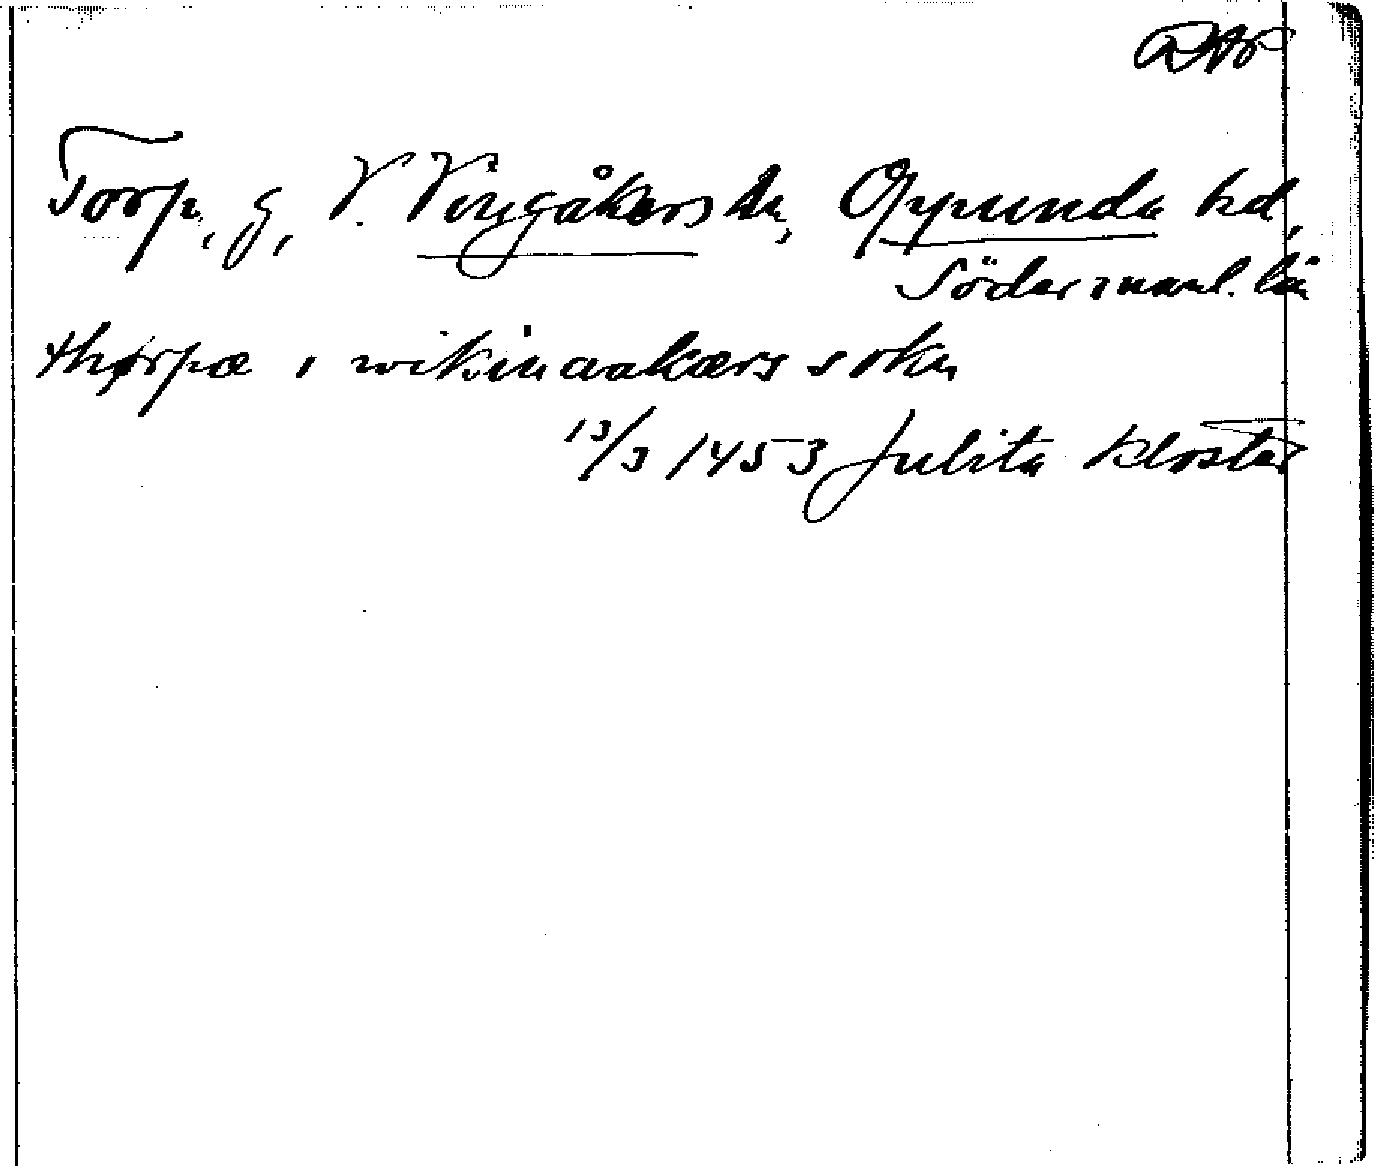 Torp, g, V. Vingåkers sn, Oppunda hd,
Södermanl. län
thørpæ i wikinaakærs sokn
13/3 1453 Julita kloster